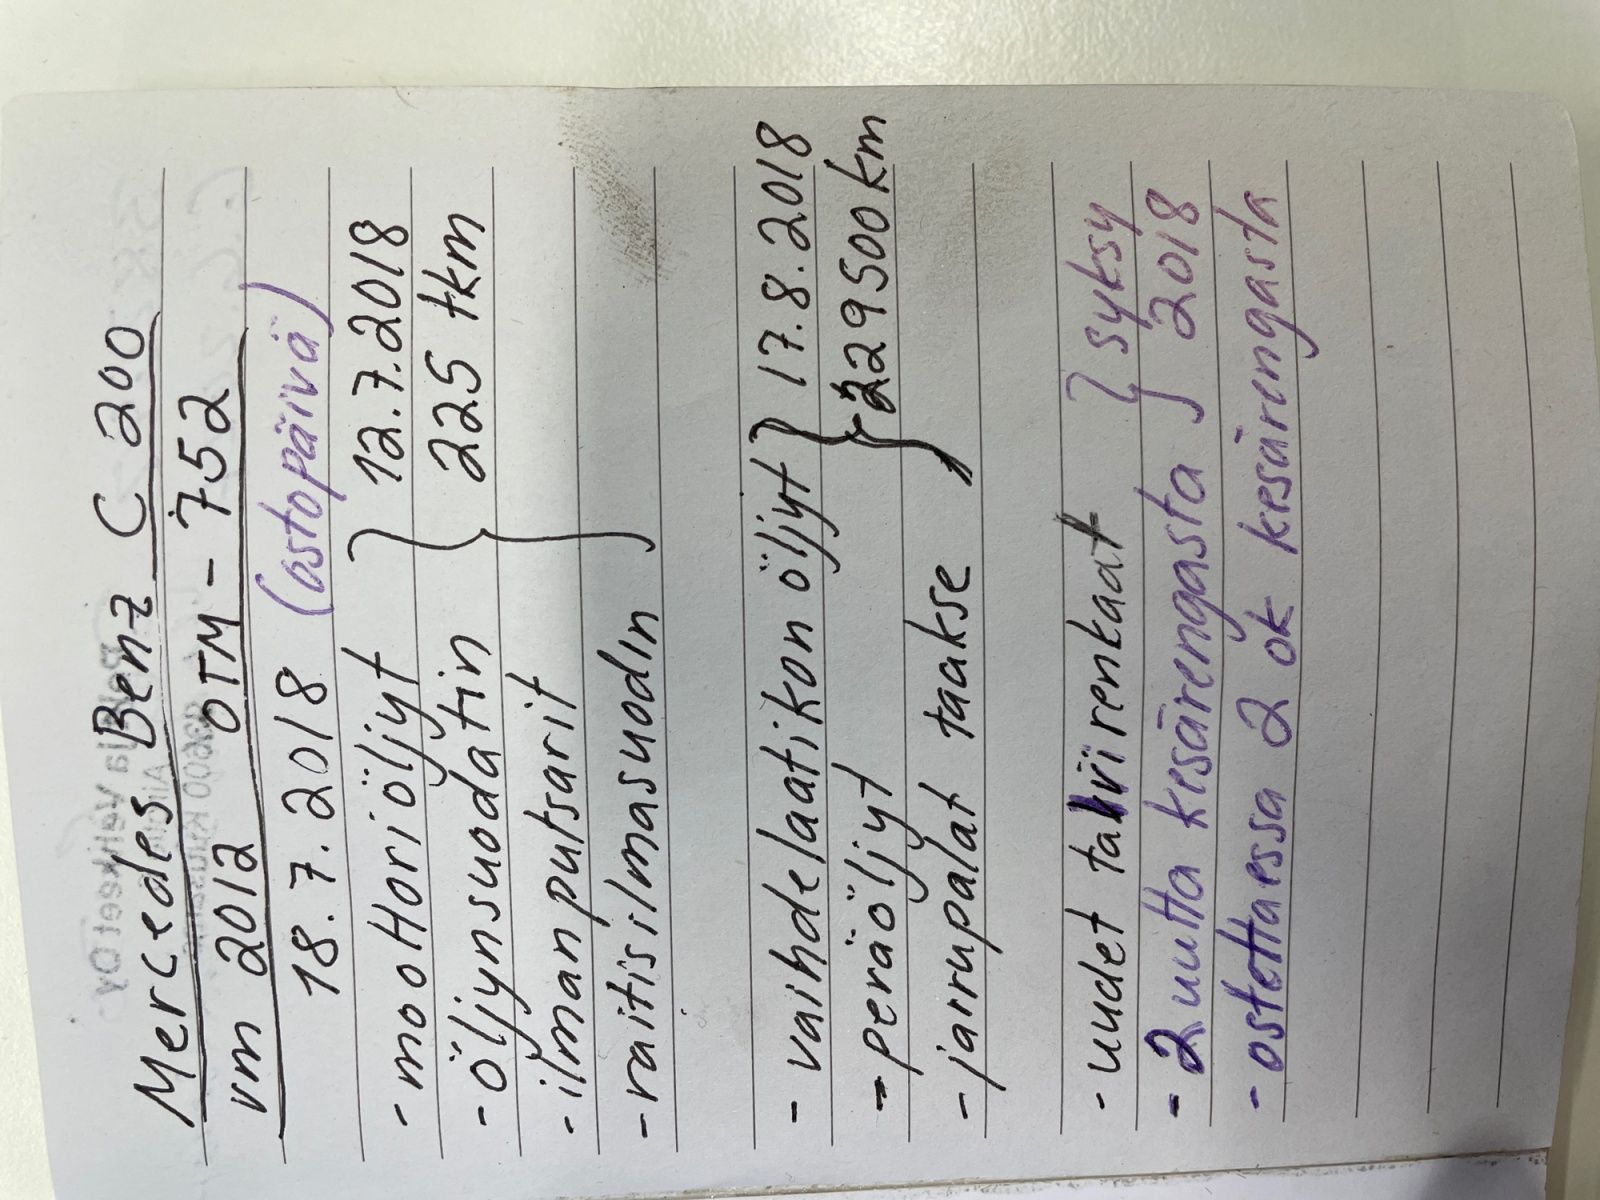 Mercedes Benz C 200
vm 2012 OTM-752
18.7.2018 (ostopäivä)
- moottoriöljyt } 12.7.2018
- öljynsuodatin 225 tkm
- ilmanputsarit
- raitisilmasuodin
- vaihdelaatikon öljyt } 17.8.2018
- peräöljyt } 229500 km
- jarrupalat taakse
- uudet talvirenkaat } syksy
- 2 uutta kesärengasta } 2018
- ostettaessa 2 ok kesärengasta